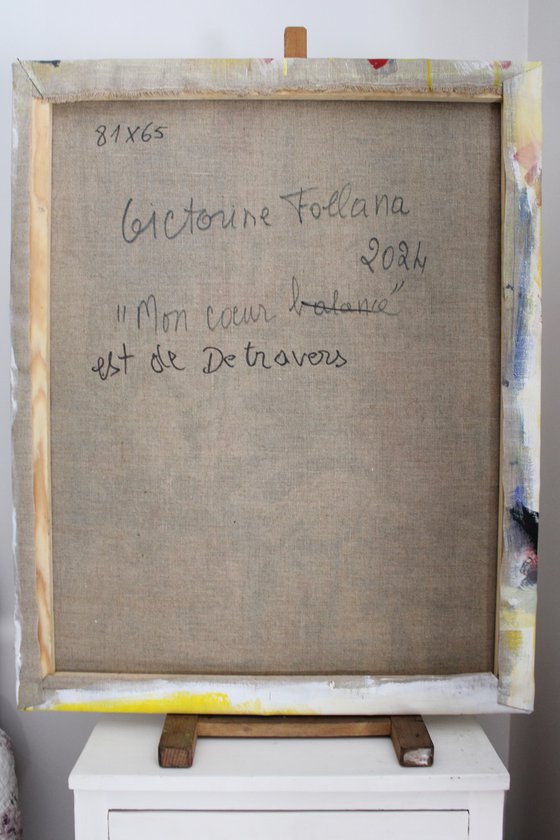 81x65
Victorine Follana
2024
"Mon cœur balance"
est de Detravers